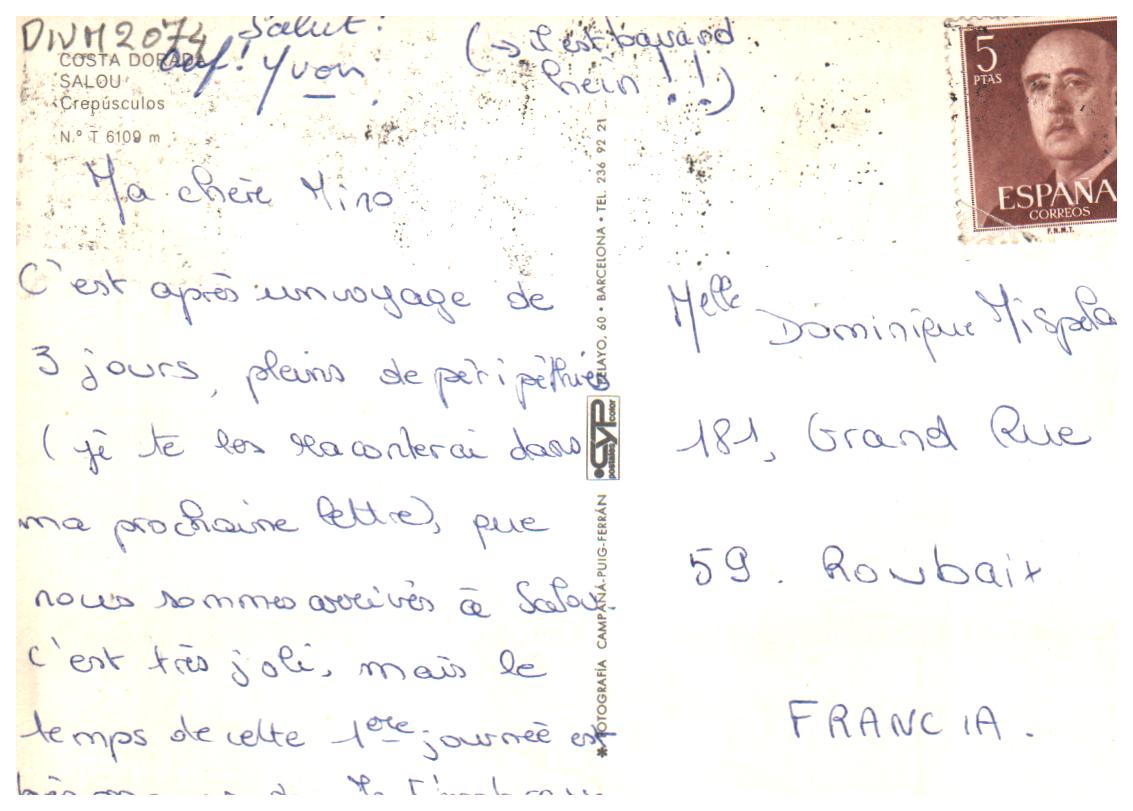 DIVM2074 Salut!
Ouf! Yvon.
(→ Il est bavard
hein!!)
COSTA DORADA
SALOU
Crepúsculos
N.º T 6109 m
5
PTAS
ESPAÑA
CORREOS
F.N.M.T.
Ma chère Mino
C'est après un voyage de
3 jours, pleins de péripéthies
(je te les raconterai dans
ma prochaine lettre), que
nous sommes arrivés à Salou.
C'est très joli, mais le
temps de cette 1ère journée est
FOTOGRAFÍA CAMPAÑA-PUIG-FERRÁN
postales CYP color
PELAYO, 60 • BARCELONA • TEL. 236 92 21
Melle Dominique
181, Grand Rue
59. Roubaix
FRANCIA.